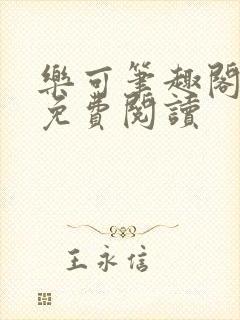 樂可筆趣閣
免費閱讀
王永信